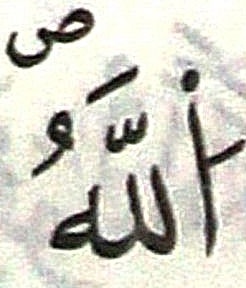 ص
اللَّهُ